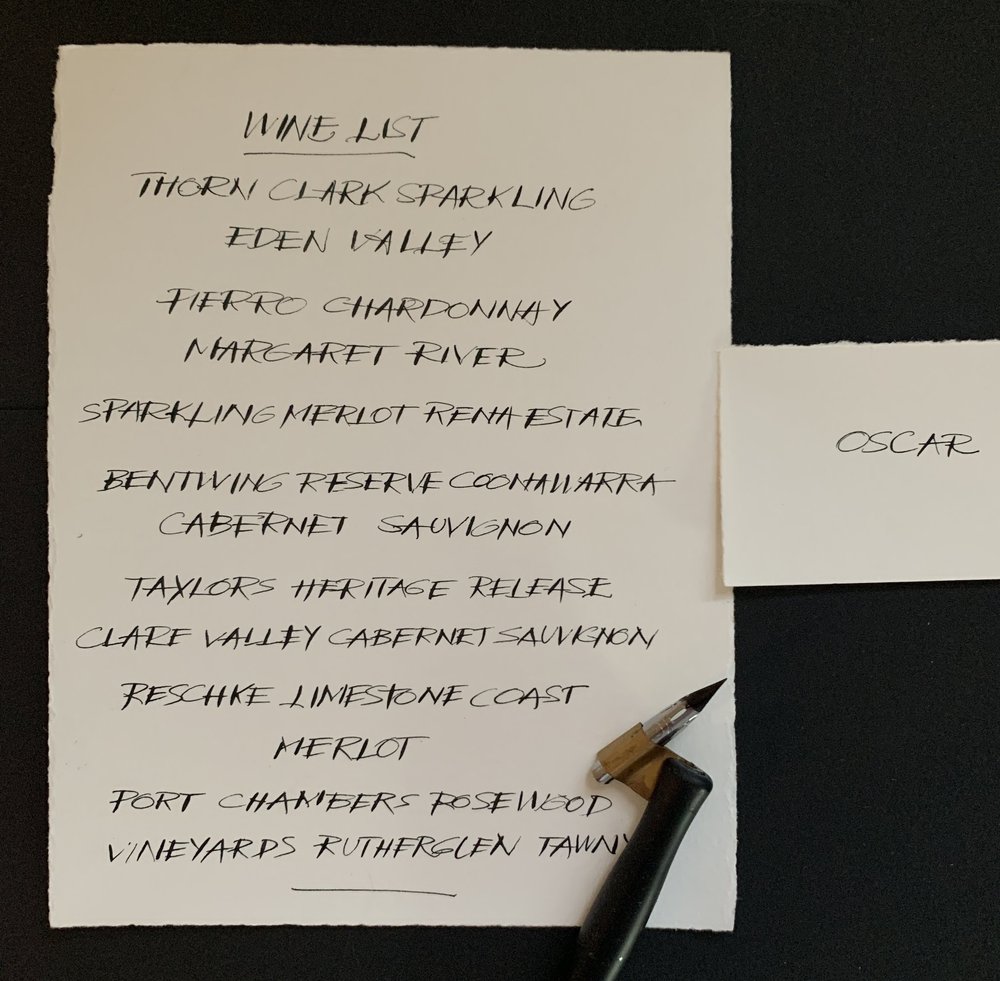 WINE LIST
THORN CLARK SPARKLING
EDEN VALLEY
PIERRO CHARDONNAY
MARGARET RIVER
SPARKLING MERLOT RENA ESTATE
BENTWING RESERVE COONAWARRA
CABERNET SAUVIGNON
TAYLORS HERITAGE RELEASE
CLARE VALLEY CABERNET SAUVIGNON
RESCHKE LIMESTONE COAST
MERLOT
PORT CHAMBERS ROSEWOOD
VINEYARDS RUTHERGLEN TAWNY
OSCAR